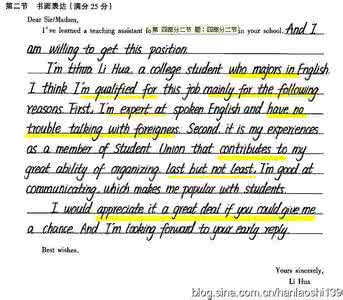 第二节 书面表达(满分25分)
Dear Sir/Madam,
I've learned a teaching assistant fo 第 四部分二节 题:四部分二节 in your school. And I
am willing to get this position.
I'm Li Hua, a college student who majors in English.
I think I'm qualified for this job mainly for the following
reasons. First, I'm expert at spoken English and have no
trouble talking with foreigners. Second, it is my experiences
as a member of Student Union that contributes to my
great ability of organizing. last but not least, I'm good at
communicating, which makes me popular with students.
I would appreciate it a great deal if you could give me
a chance. And I'm looking forward to your early reply.
Best wishes.
Yours sincerely,
Li Hua
blog.sina.com.cn/hanlaoshi139